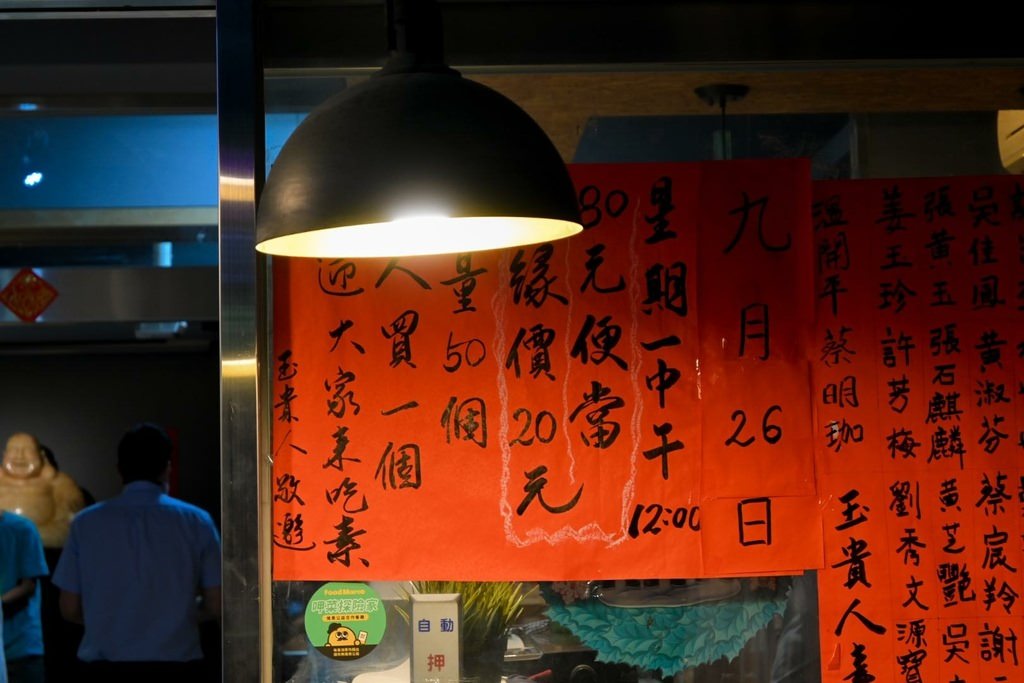 九月26日
星期一中午12:00
80元便當
緣價20元
量50個
人買一個
迎大家来吃素
玉貴人敬邀
溫開平 蔡明珈 玉貴人
姜玉珍 許芳梅 劉秀文 源寶
張黄玉 張石麒麟 黄芝艷 吳
吳佳鳳 黄淑芬 蔡宸羚 謝
Food Marco
呷菜探險家
自動
押